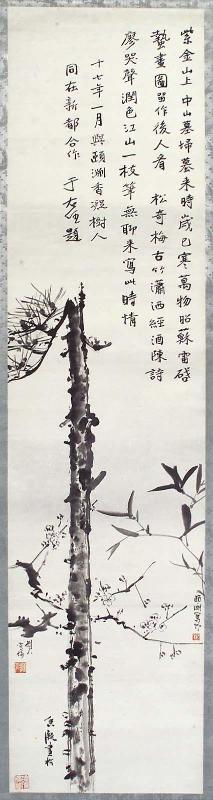 紫金山上中山墓掃墓来時歲已寒萬物昭蘇雷啓
蟄畫圖留作後人看 松奇梅古竹瀟洒經酒陳詩
廖哭聲潤色江山一枝筆無聊来寫此時情
十七年一月與頤淵香凝樹人
同在新都合作 于右任題
頤淵寫竹
香凝畫松